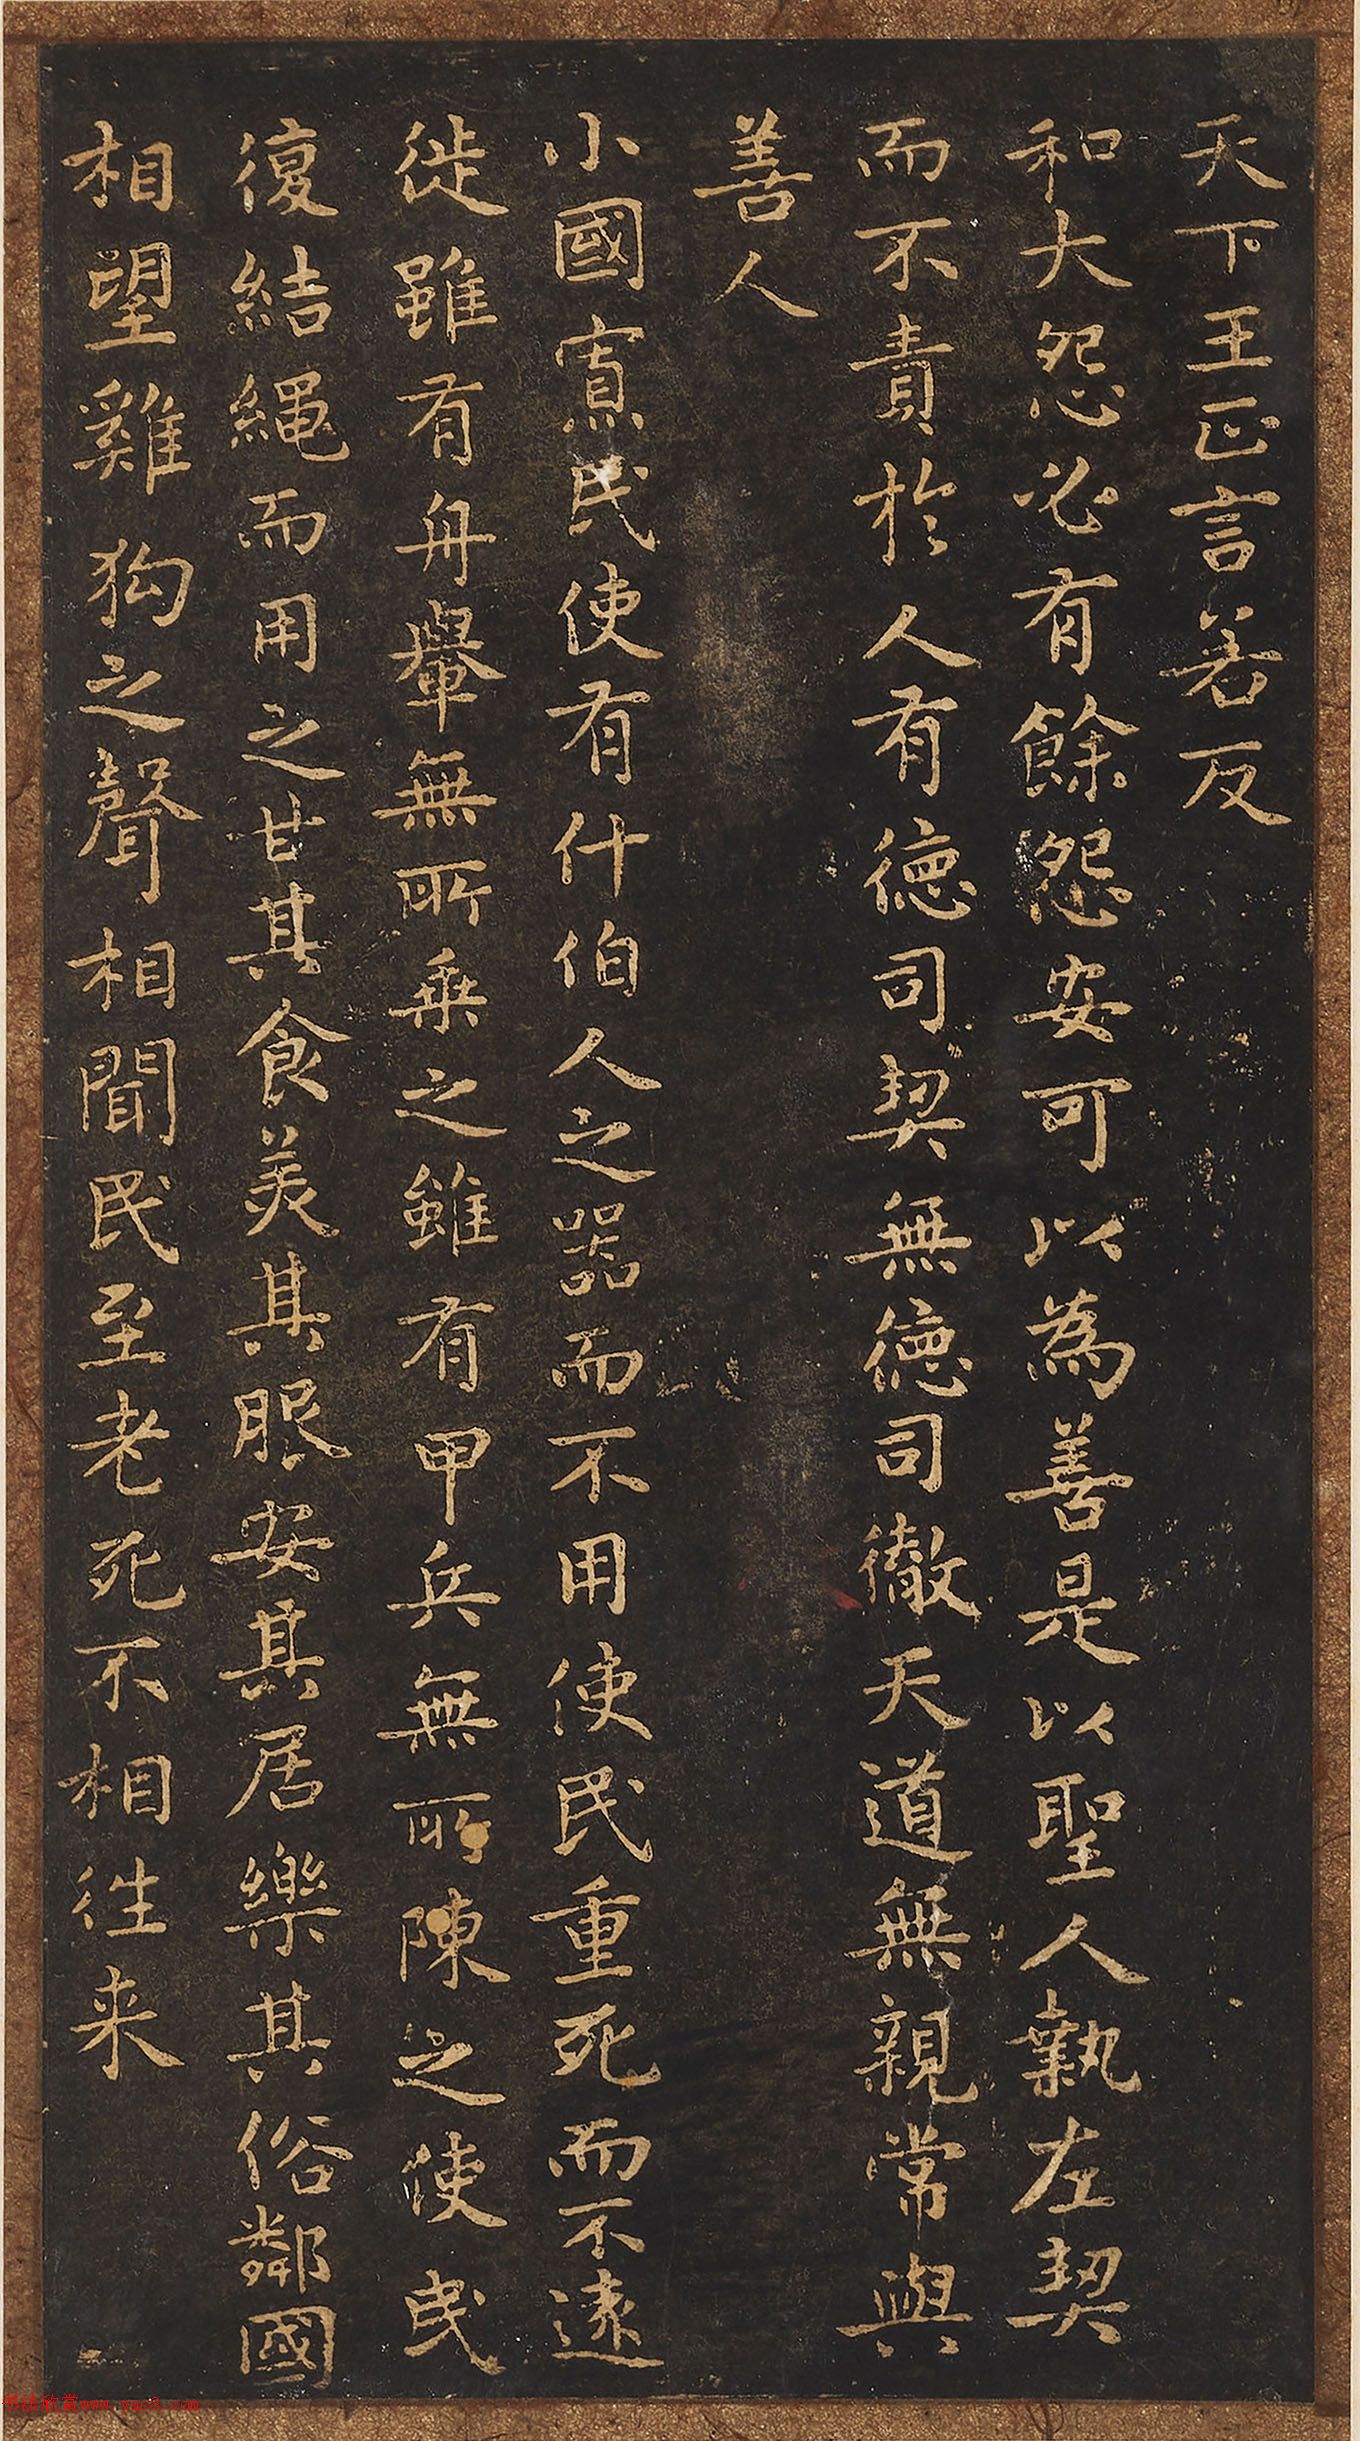 天下王正言若反
和大怨必有餘怨安可以為善是以聖人執左契
而不責於人有德司契無德司徹天道無親常與
善人
小國寡民使有什伯人之器而不用使民重死而不遠
徙雖有舟轝無所乘之雖有甲兵無所陳之使民
復結繩而用之甘其食美其服安其居樂其俗鄰國
相望雞狗之聲相聞民至老死不相往来
书法欣赏www.yac8.com